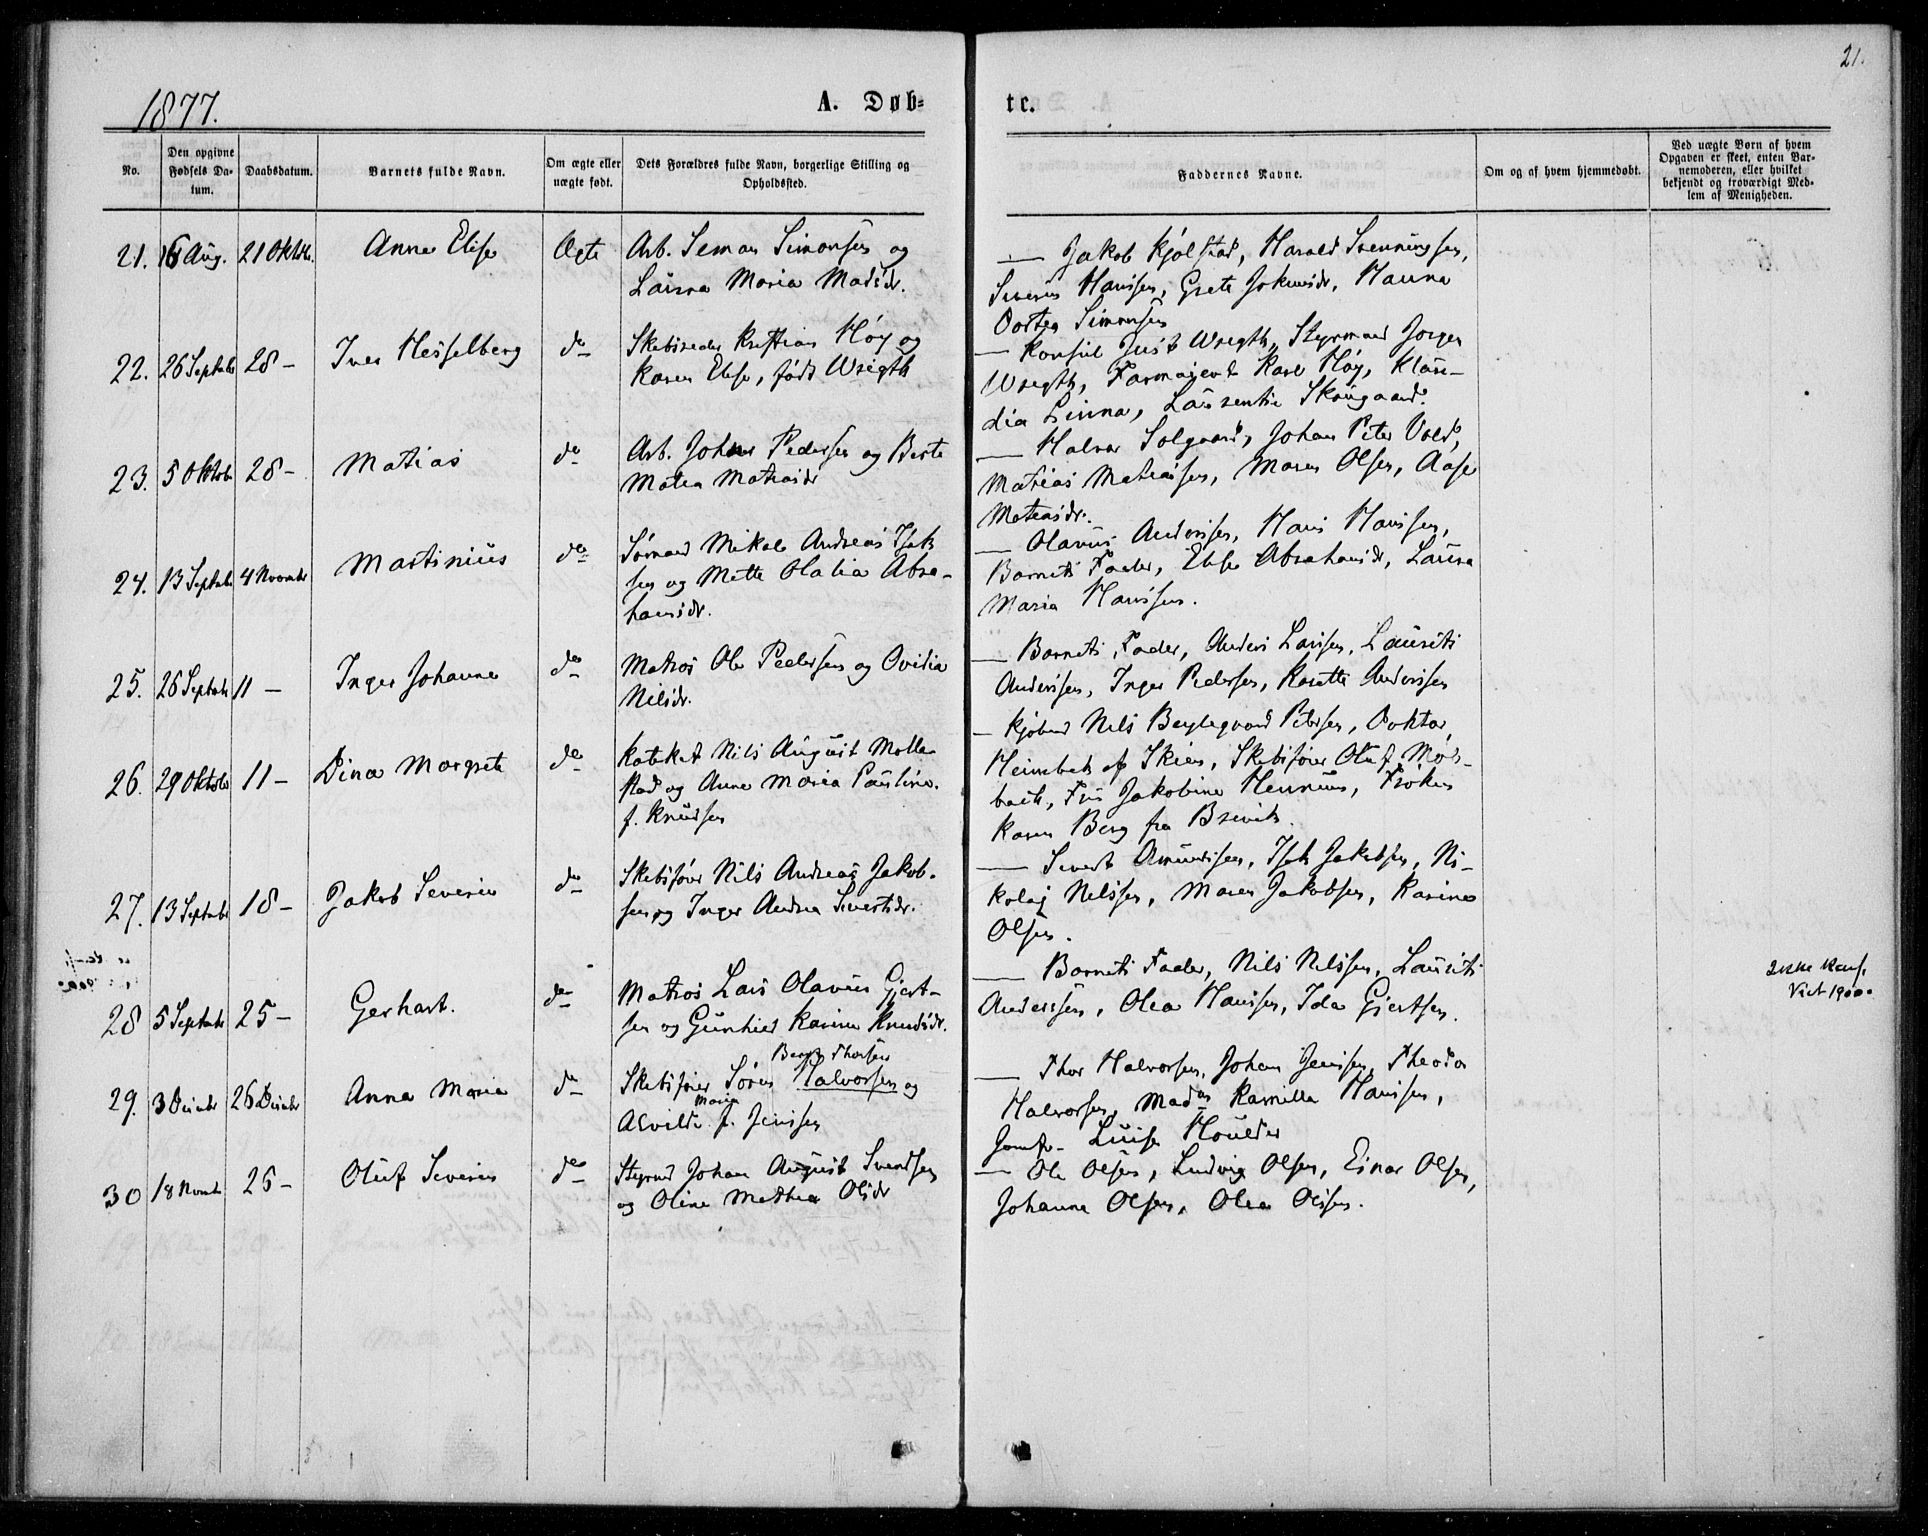 21.
1877.
A. Døb-
te.
No.
Den opgivne
Fødsels Da-
tum.
Daabsdatum.
Barnets fulde Navn.
Om ægte eller
uægte født.
Dets Forældres fulde Navn, borgerlige Stilling og
Opholdssted.
Faddernes Navne.
Om og af hvem hjemmedøbt.
Ved uægte Børn af hvem
Opgaven er skeet, enten Bar-
nemoderen, eller hvilket
bekjendt og troværdigt Med-
lem af Menigheden.
21. 16 Aug. 21 Oktob. Anna Elise Ægte
Arb. Simon Simonsen og
Laura Maria Madsdr.
— Jakob Kjølstad, Harald Svenningsen,
Severin Hansen, Grete Jokumsdr, Hanna
Dortea Simonsen
22. 26 Septebr 28 – Iver Hesselberg do
Skibsreder Kristian Høy og
Karen Elise, født Wrigth
— Konsul Just Wrigth, Styrmand Jørgen
Wrigth, Farmaceut Karl Høy, Klau-
dia Linna, Laurentie Skougaard.
23. 5 Oktobr 28 – Matias do
Arb. Johan Pedersen og Berte
Matea Matiasdr
— Halvor Solgaard, Johan Peter Vold,
Matias Matiassen, Maren Olsen, Aase
Mateasdr.
24. 13 Septebr 4 Novembr Martinius do
Sømand Mikal Andreas Isak
sen og Mette Halia Abra-
hamsdr.
— Olavus Andersen, Hans Hansen,
Barnets Fader, Elise Abrahamsdr, Laura
Maria Hansen.
25. 26 Septebr 11 – Inger Johanne do
Matros Ole Pedersen og Ovidia
Nilsdr.
— Barnets Fader, Anders Larsen, Laurits
Andersen, Inger Pedersen, Rosette Andersen
26. 29 Oktobr 11 – Dina Margrete do
Kateket Nils August Molle
stad og Anne Maria Pauline
f. Knudsen
— Kjøbmd Nils Beylegaard Petersen, Doktor
Heimbeck af Skien, Skibsfører Oluf Mør-
bech, Fru Jakobine Hennum, Frøken
Karen Berg fra Brevik.
27. 13 Septebr 18 – Jakob Severin do
Skibsfører Nils Andreas Jakob-
sen og Inger Andrea Sivertsdr.
— Sivert Amundsen, Isak Jakobsen, Ni-
kolaj Nilssen, Maren Jakobsen, Karine
Olsen.
28 5 Septebr 25 – Gerhart. do
Matros Lars Olavus Gjert-
sen og Gunhild Karine Knudsdr.
— Barnets Fader, Nils Nilssen, Laurits
Anderssen, Olea Hansen, Ida Gjertsen.
Ikke Konf.
Vict 1900.
29. 3 Decmbr 26 Decmbr Anna Maria do
Berg Thorsen
Skibsfører Søren Halvorsen og
Maria
Alvilde f. Jensen
— Thor Halvorsen, Johan Jensen, Theodor
Halvorsen, Madam Kamilla Hansen,
Jomfr. Luise Houlder
30 18 Novmbr 26 – Oluf Severin do
Styrmd Johan August Svendsen
og Oline Mathea Olsdr
— Ole Olsen, Ludvig Olsen, Einar Olsen,
Johanne Olsen, Olea Olsen.